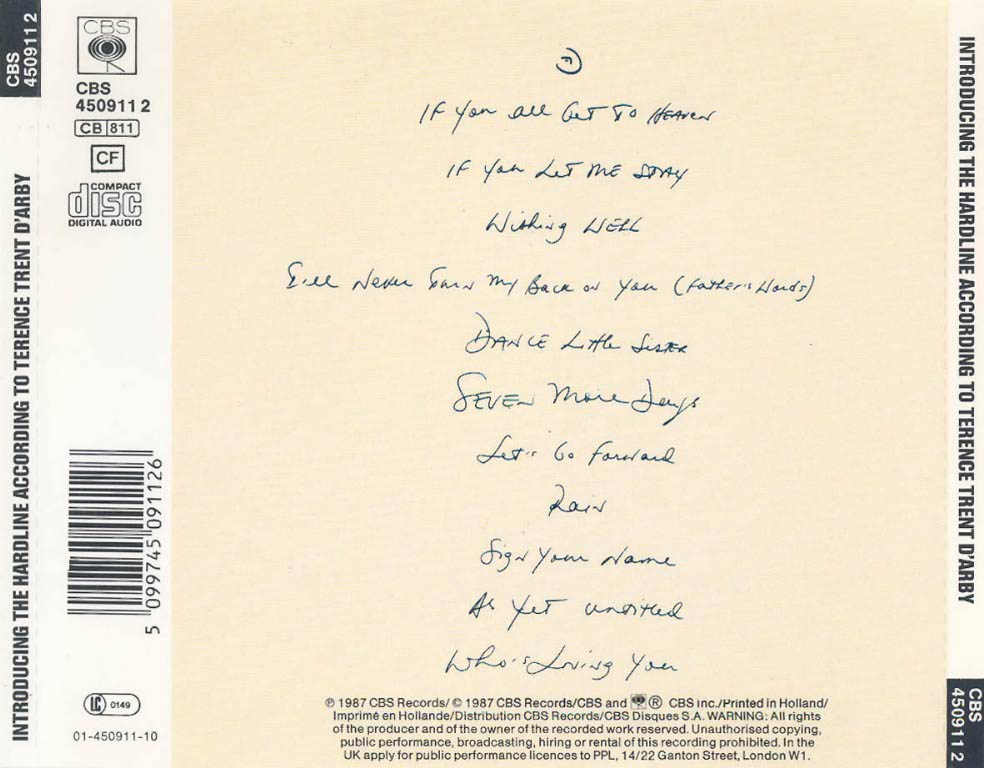 CBS
450911 2
INTRODUCING THE HARDLINE ACCORDING TO TERENCE TRENT D'ARBY
CBS
CBS
450911 2
CB 811
CF
COMPACT
disc
DIGITAL AUDIO
5 099745 091126
LC 0149
01-450911-10
If You All Get To Heaven
If You Let Me Stay
Wishing Well
I'll Never Turn My Back on You (Father's Words)
Dance Little Sister
Seven More Days
Let's Go Forward
Rain
Sign Your Name
As Yet Untitled
Who's Loving You
℗ 1987 CBS Records/ © 1987 CBS Records/CBS and ® CBS inc./Printed in Holland/
Imprimé en Hollande/Distribution CBS Records/CBS Disques S.A. WARNING: All rights
of the producer and of the owner of the recorded work reserved. Unauthorised copying,
public performance, broadcasting, hiring or rental of this recording prohibited. In the
UK apply for public performance licences to PPL, 14/22 Ganton Street, London W1.
INTRODUCING THE HARDLINE ACCORDING TO TERENCE TRENT D'ARBY
CBS
450911 2